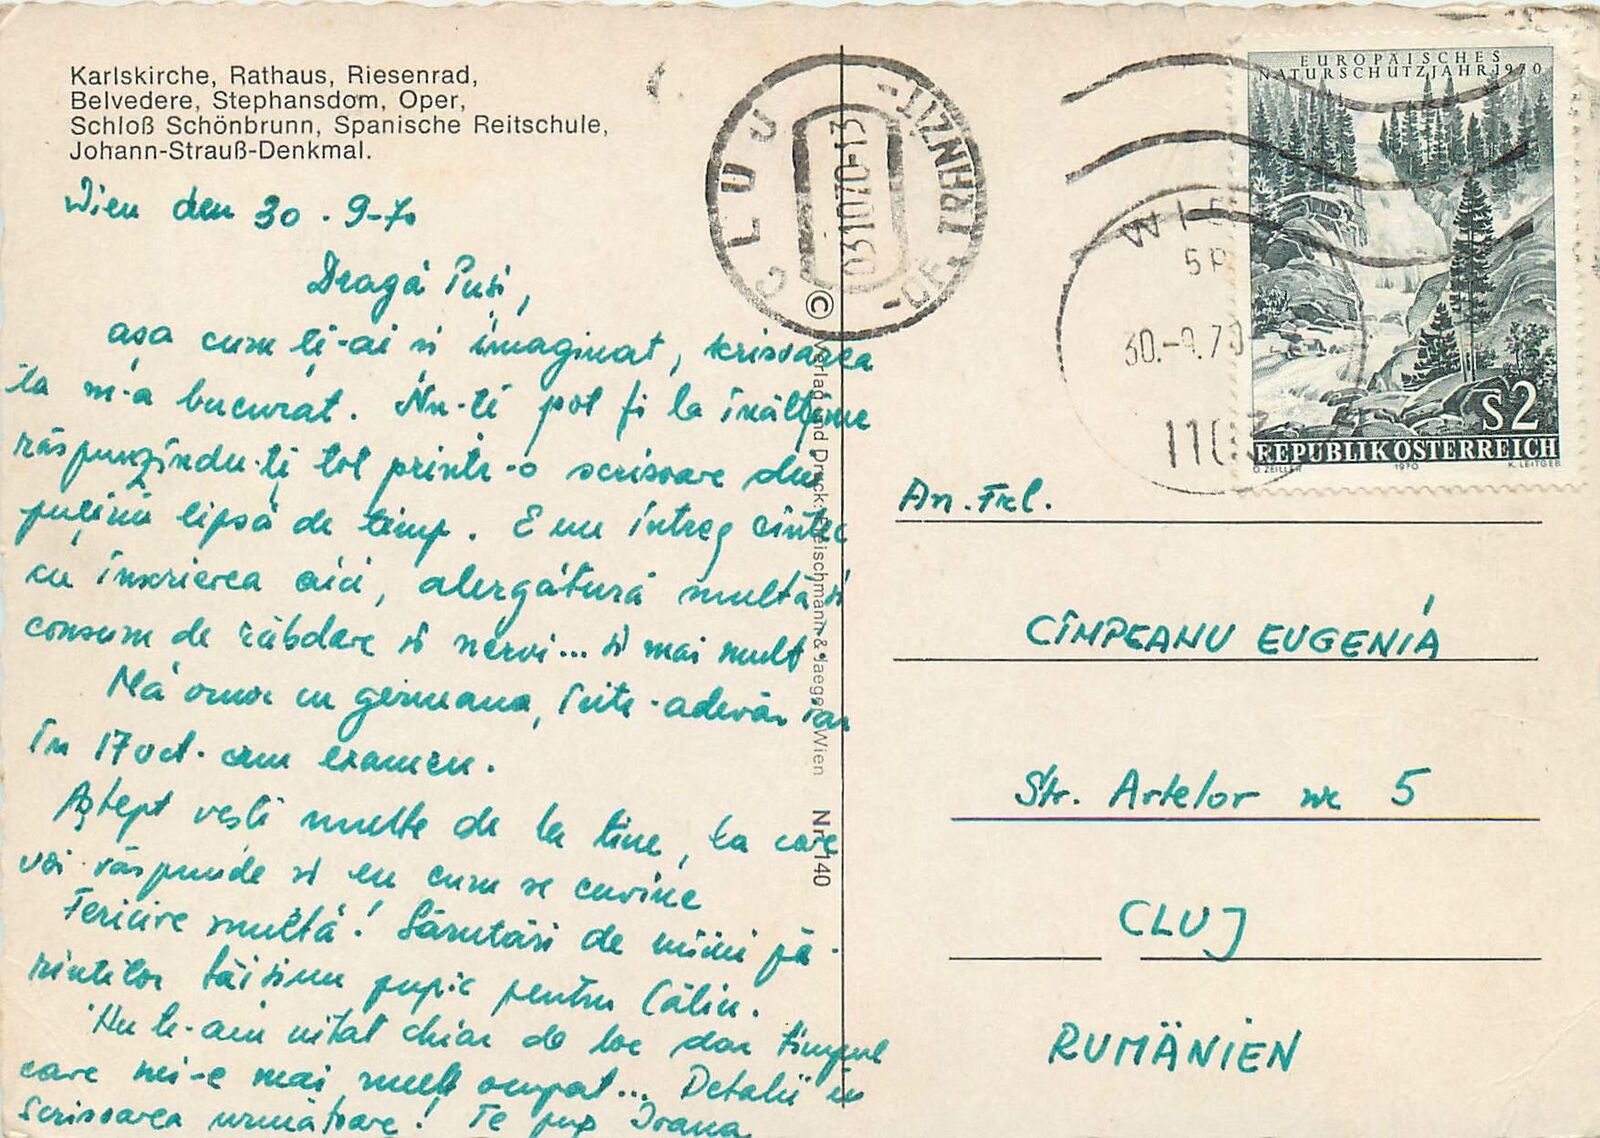 Karlskirche, Rathaus, Riesenrad,
Belvedere, Stephansdom, Oper,
Schloß Schönbrunn, Spanische Reitschule,
Johann-Strauß-Denkmal.
Wien den 30.9-70
Dragă Pusi,
așa cum ți-ai și imaginat, scrisoarea
ta m-a bucurat. Nu-ți pot fi la înălțime
răspunzîndu-ți tot printr-o scrisoare din
pricina lipsă de timp. E un întreg cîntec
cu înscrierea aici, alergătură multă și
consum de răbdare și nervi... și mai mult
Mă omor cu germana, într-adevăr iar
în 17 oct. am examen.
Aștept vești multe de la tine, la care
voi răspunde și eu cum se cuvine
Fericire multă! Sărutări de mîini pă-
rintilor tăi și un pupic pentru Călin.
Nu te-am uitat chiar de loc dar timpul
care mi-e mai mult ocupat... Detalii în
scrisoarea următoare! Te pup Ioana
Verlag und Druck: Fleischmann & Jaeger, Wien Nr. 140
©
CLUJ
03.10.70-13
-DE
WIEN
30.-9.70
110
EUROPÄISCHES
NATURSCHUTZJAHR 1970
S2
REPUBLIK ÖSTERREICH
O. ZEILLER 1970 K. LEITGEB
An. Frl.
CÎMPEANU EUGENIA
Str. Artelor nr 5
CLUJ
RUMÄNIEN